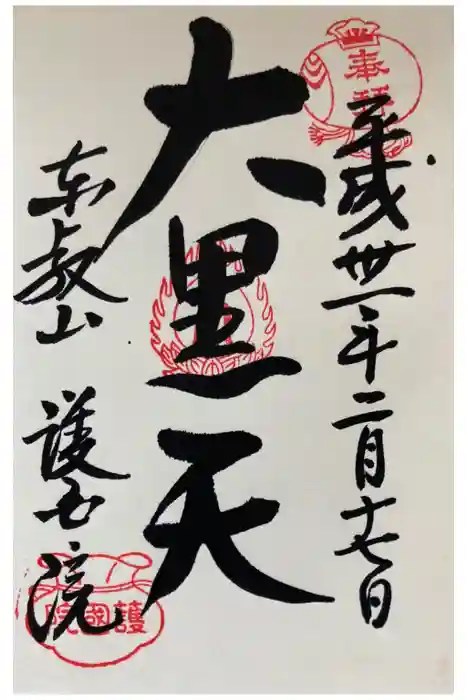 奉拝
平成卅一年二月十七日
大黒天
東叡山 護国院
護國院